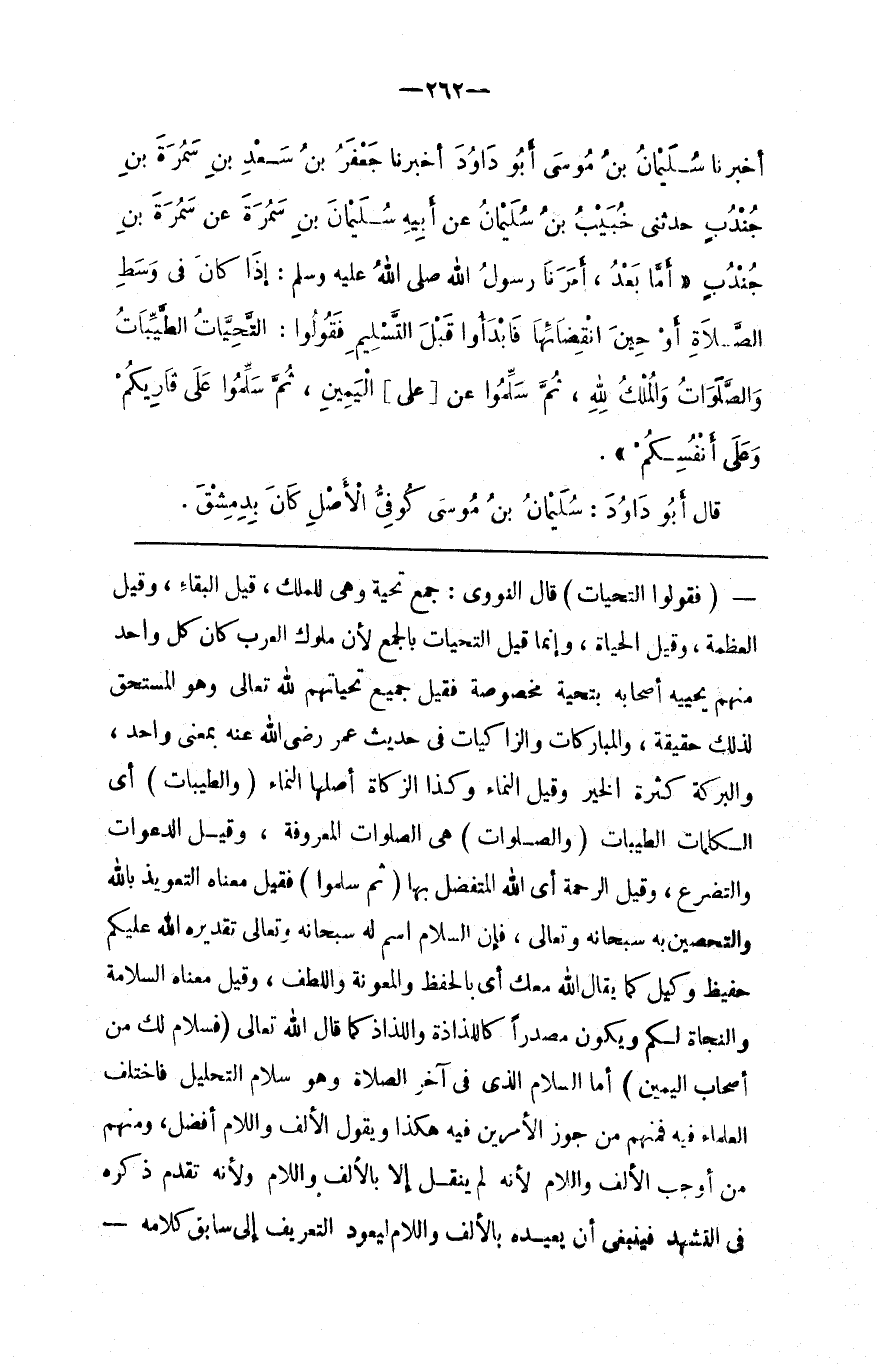 —٢٦٢—
أخبرنا سُـلَيْمَانُ بنُ مُوسَى أَبُو دَاوُدَ أخبرنا جَعْفَرُ بنُ سَـعْدِ بنِ سَمُرَةَ بنِ
جُنْدُبٍ حدثنى خُبَيْبُ بنُ سُلَيْمَانُ عن أَبِيهِ سُـلَيْمَانَ بنِ سَمُرَةَ عن سَمُرَةَ بنِ
جُنْدُبٍ « أَمَّا بَعْدُ ، أَمَرَنَا رسولُ الله صلى اللهُ عليه وسلم : إذَا كانَ فى وَسَطِ
الصَّـلاَةِ أَوْ حِينَ انْقِضَائِهَا فَابْدَأُوا قَبْلَ التَّسْلِيمِ فَقُولُوا : التَّحِيَّاتُ الطَّيِّبَاتُ
وَالصَّلَوَاتُ وَالْمُلْكُ لِلهِ ، ثُمَّ سَلِّمُوا عن [ على ] الْيَمِينِ ، ثُمَّ سَلِّمُوا عَلَى قَارِيكُمْ
وَعَلَى أَنْفُسِـكُمْ » .
قال أَبُو دَاوُدَ : سُلَيْمَانُ بنُ مُوسَى كُوفِىُّ الْأَصْلِ كَانَ بِدِمِشْقَ .
— ( فقولوا التحيات ) قال النووى : جمع تحية وهى للملك ، قيل البقاء ، وقيل
العظمة ، وقيل الحياة ، وإنما قيل التحيات بالجمع لأن ملوك العرب كان كل واحد
منهم يحييه أصحابه بتحية مخصوصة فقيل جميع تحياتهم لله تعالى وهو المستحق
لذلك حقيقة ، والمباركات والزاكيات فى حديث عمر رضى الله عنه بمعنى واحد ،
والبركة كثرة الخير وقيل النماء وكذا الزكاة أصلها النماء ( والطيبات ) أى
الـكلمات الطيبات ( والصـلوات ) هى الصلوات المعروفة ، وقيـل الدعوات
والتضرع ، وقيل الرحمة أى الله المتفضل بها ( ثم سلموا ) فقيل معناه التعويذ بالله
والتحصين به سبحانه وتعالى ، فإن السلام اسم له سبحانه وتعالى تقديره الله عليكم
حفيظ وكيل كما يقال الله معك أى بالحفظ والمعونة واللطف ، وقيل معناه السلامة
والنجاة لـكم ويكون مصدراً كاللذاذة واللذاذ كما قال الله تعالى (فسلام لك من
أصحاب اليمين ) أما السلام الذى فى آخر الصلاة وهو سلام التحليل فاختلف
العلماء فيه فمنهم من جوز الأمرين فيه هكذا ويقول الألف واللام أفضل، ومنهم
من أوجب الألف واللام لأنه لم ينقـل إلا بالألف واللام ولأنه تقدم ذكره
فى التشهد فينبغى أن يعيـده بالألف واللام ليعود التعريف إلى سابق كلامه —